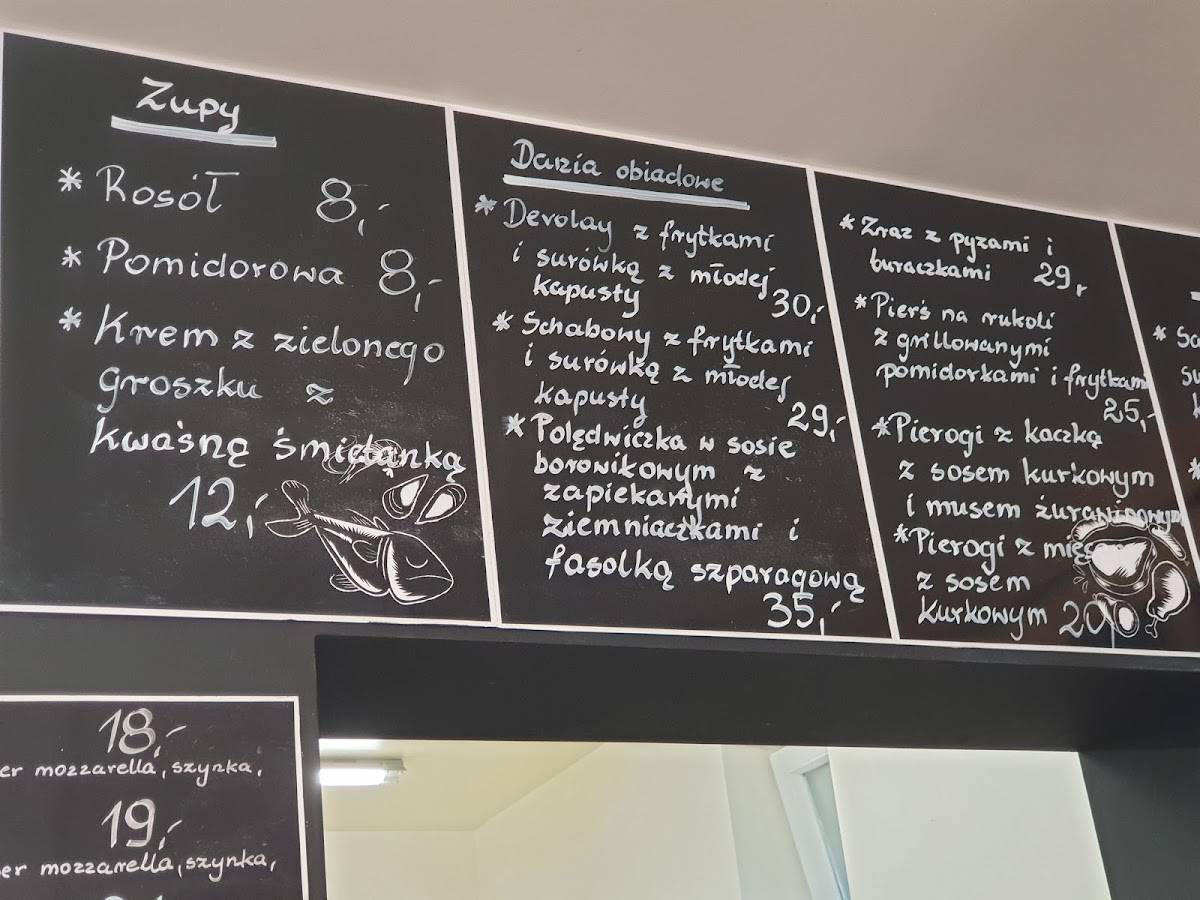 Zupy
* Rosół 8,-
* Pomidorowa 8,-
* Krem z zielonego
groszku z
kwaśną śmietanką
12,-
Dania obiadowe
* Devolay z frytkami
i surówką z młodej
kapusty 30,-
* Schabowy z frytkami
i surówką z młodej
kapusty 29,-
* Polędwiczka w sosie
borowikowym z
zapiekanymi
ziemniaczkami i
fasolką szparagową
35,-
* Zraz z pyzami i
buraczkami 29,
* Pierś na rukoli
z grillowanymi
pomidorkami i frytkami
25,-
* Pierogi z kaczką
z sosem kurkowym
i musem żurawinowym
* Pierogi z mięsem
z sosem
kurkowym 20,-
*
*
18,-
er mozzarella, szynka,
19,-
er mozzarella, szynka,